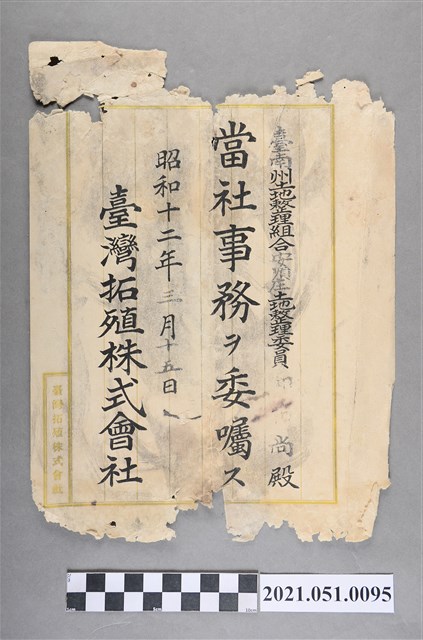 臺南州土地整理組合安順庄土地整理委員
尚殿
當社事務ヲ委囑ス
昭和十二年三月十五日
臺灣拓殖株式會社
臺灣拓殖株式會社
2021.051.0095